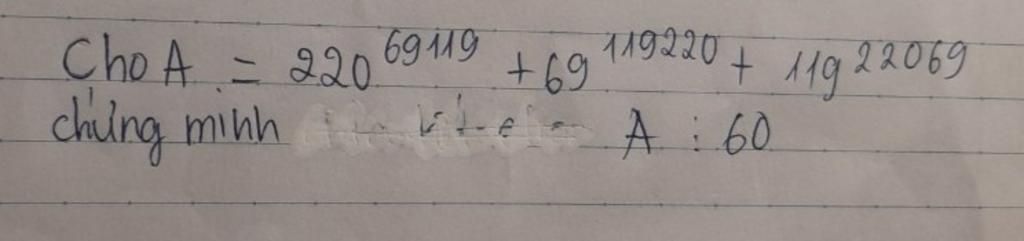 Cho A = 220^69119 + 69^119220 + 119^22069
chứng minh A ⋮ 60